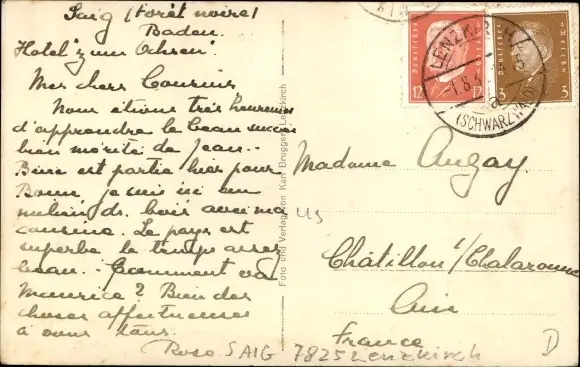 Saig (Forêt noire)
Baden.
Hotel "zum Ochsen".
Mes chers Cousins
Nous étions très heureux
d'apprendre le beau succès
bien mérité de Jean..
est partie hier pour
je suis ici au
milieu ds. bois avec ma
cousine. Le pays est
superbe le temps assez
beau.. Comment va
Maurice? Bien des
choses affectueuses
à vous tous.
Rose
SAIG 7825 Lenzkirch
D
Foto und Verlag von Karl Brugger, Lenzkirch
Deutsches Reich
12 12
Deutsches Reich
3 3
LENZKIRCH
-1.8.
(SCHWARZWALD)
Madame Auzay
us
Châtillon s/Chalaronne
Ain
France